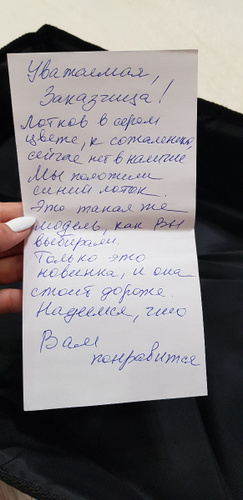 Уважаемая,
Заказчица!
Лотков в сером
цвете, к сожалению,
сейчас нет в наличие
Мы положили
синий лоток.
Это такая же
модель, как Вы
выбирали.
Только это
новинка, и она
стоит дороже.
Надеемся, что
Вам
понравится